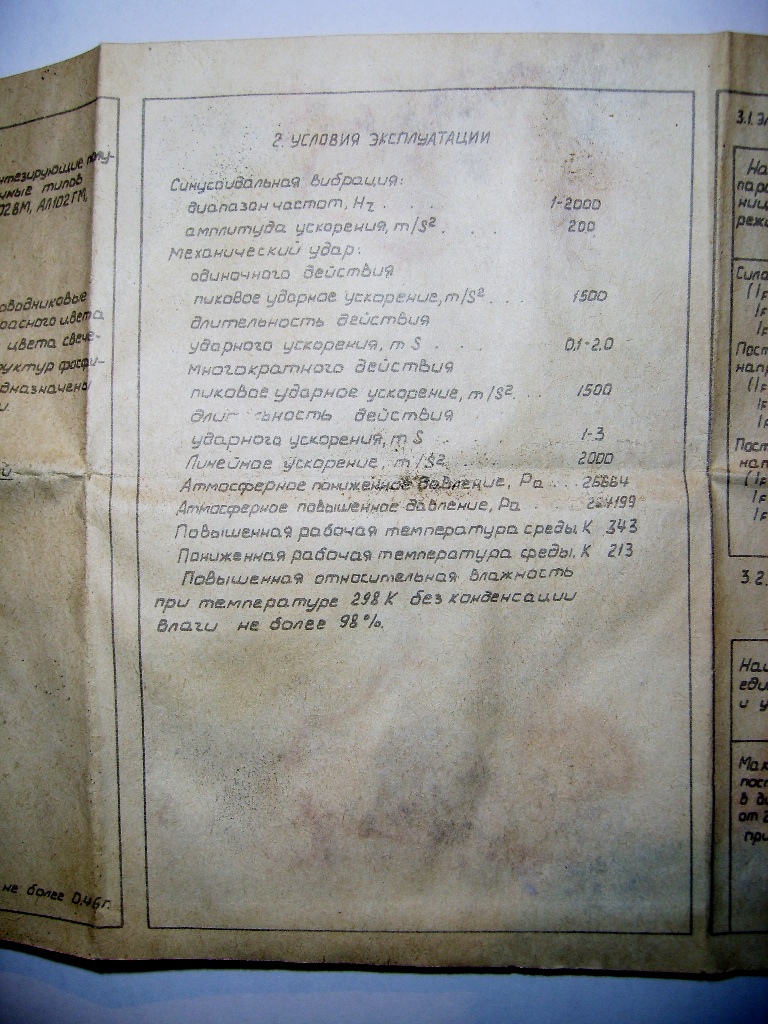 нтезирующие полу-
чные типов
02ВМ, АЛ102ГМ,
оводниковые
расного цвета
цвета свече-
руктур фосфи-
дназначены
и.
й
не более 0,46г.
2. УСЛОВИЯ ЭКСПЛУАТАЦИИ
Синусоидальная вибрация:
диапазон частот, Hz . . . 1-2000
амплитуда ускорения, m/s² . . . 200
Механический удар:
одиночного действия
пиковое ударное ускорение, m/s² . . . 1500
длительность действия
ударного ускорения, m s . . . 0,1-2,0
многократного действия
пиковое ударное ускорение, m/s² . . . 1500
длительность действия
ударного ускорения, m s . . . 1-3
Линейное ускорение, m/s² . . . 2000
Атмосферное пониженное давление, Pa . . . 26664
Атмосферное повышенное давление, Pa . . .
Повышенная рабочая температура среды, K 343
Пониженная рабочая температура среды, K 213
Повышенная относительная влажность
при температуре 298 K без конденсации
влаги не более 98%.
3.1. Эл
На
пара
ниц
режи
Сила
(IF
IF
IF
Пост
напр
(IF
IF
IF
Пост
нап
(IF
IF
IF
3.2.
Наи
еди
и у
Мак
пост
в ди
от 2
при